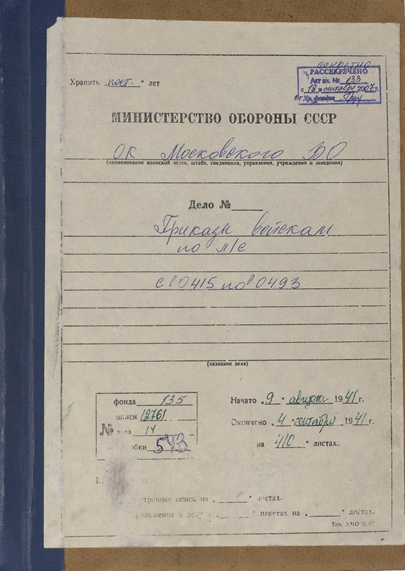 секретно
РАССЕКРЕЧЕНО
Акт вх. № 133
Хранить пост. лет
МИНИСТЕРСТВО ОБОРОНЫ СССР
ОК Московского ВО
(наименование воинской части, штаба, соединения, управления, учреждения и заведения)
Дело №
Приказы войскам
по л/с
с 00415 по 00493
(название дела)
фонда 135
описи 12761
№ дела 14
543
Начато 9 августа 1941 г.
Окончено 4 сентября 1941 г.
на 410 листах.
опись на листах.
пакетах на листах.